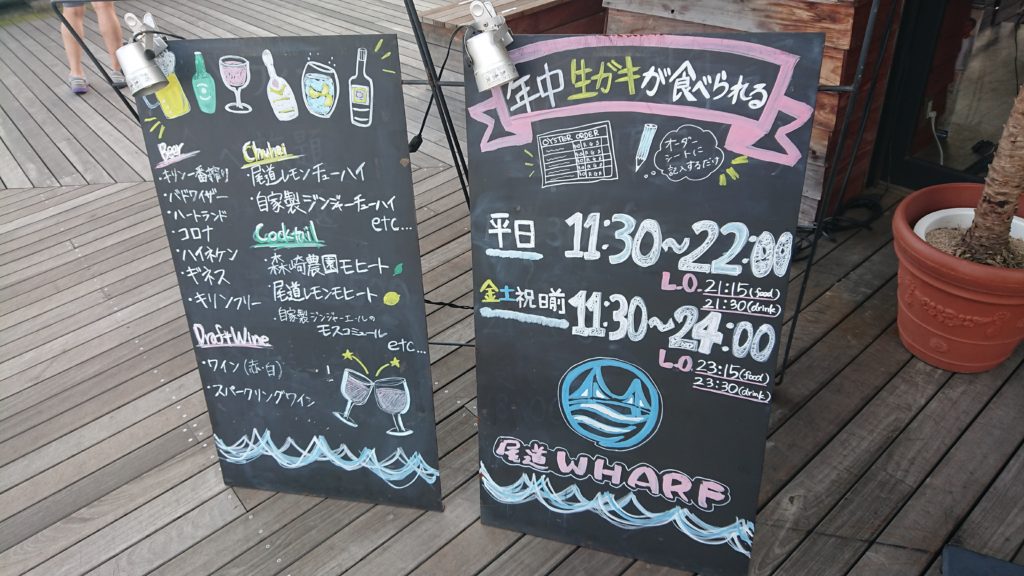 Beer
キリン一番搾り
・バドワイザー
・ハートランド
・コロナ
・ハイネケン
・ギネス
・キリンフリー
Draft Wine
・ワイン(赤・白)
・スパークリングワイン
Chuhai
・尾道レモンチューハイ
・自家製ジンジャーチューハイ
etc...
Cocktail
・森崎農園モヒート
・尾道レモンモヒート
・自家製ジンジャーエールの
モスコミュール
etc...
年中生ガキが食べられる
OYSTER ORDER
オーダー
シートに
記入するだけ
平日 11:30~22:00
L.O. 21:15(food)
21:30(drink)
金土祝日前 11:30~24:00
L.O. 23:15(food)
23:30(drink)
尾道WHARF